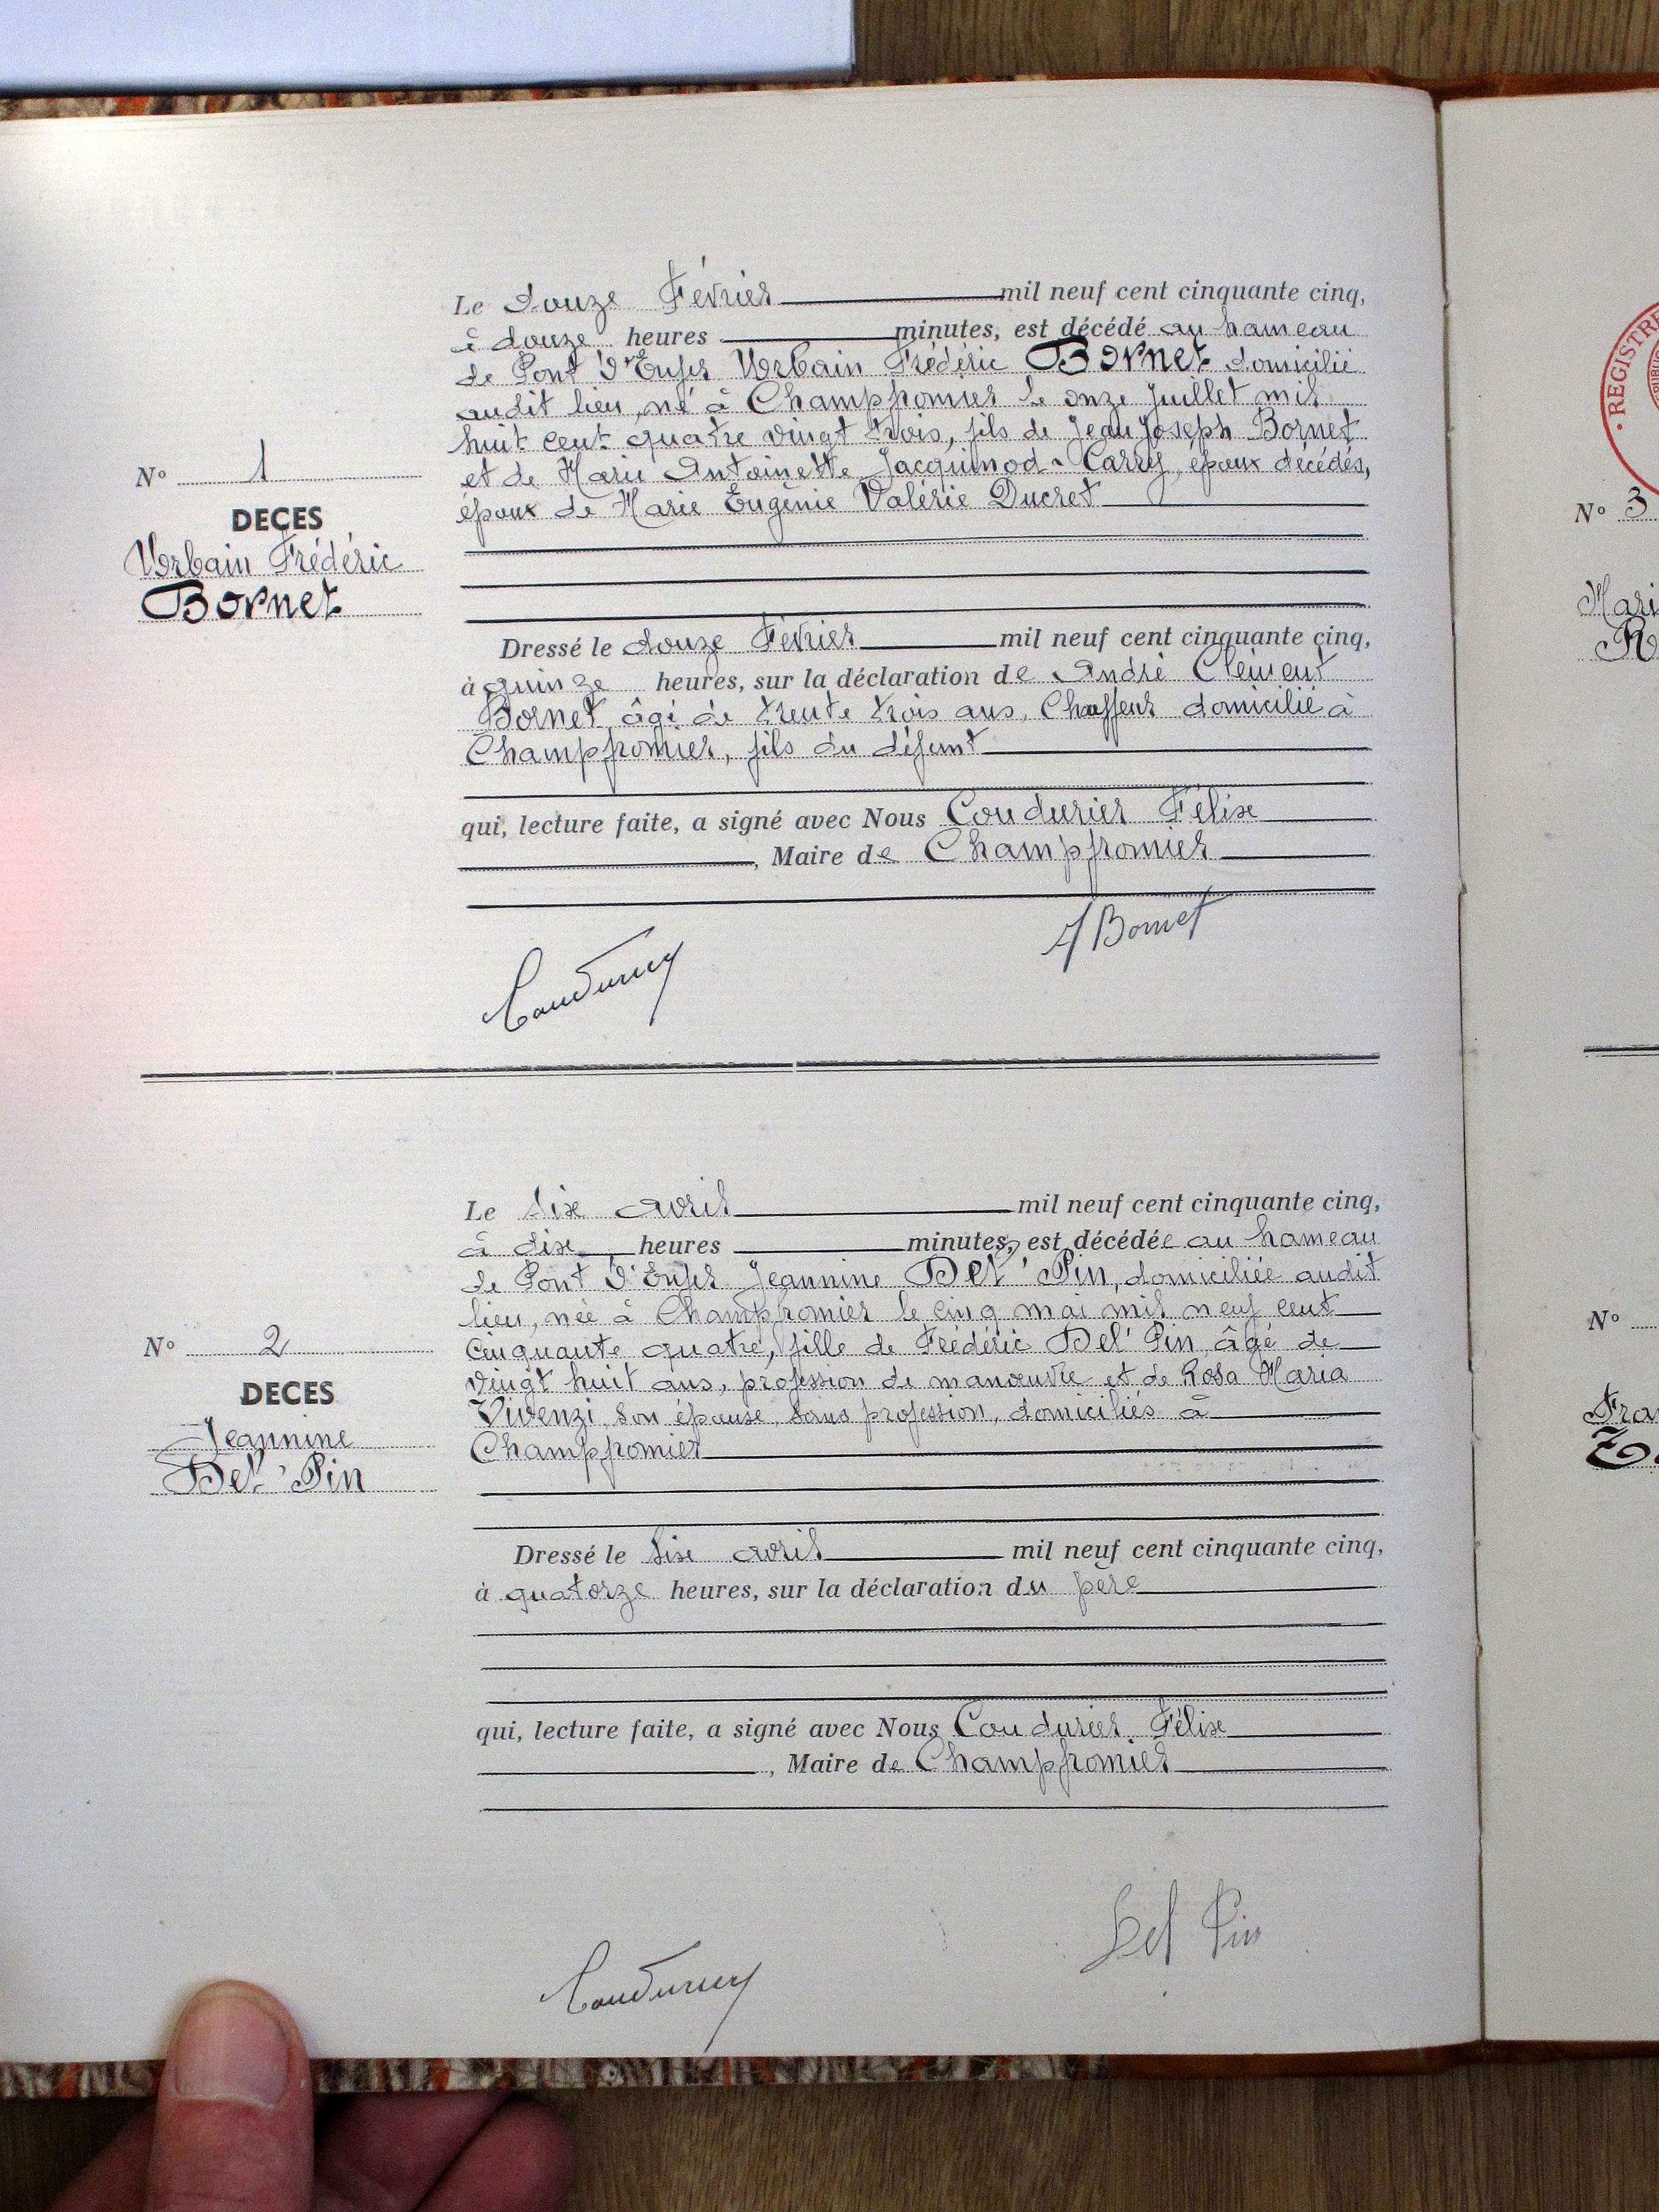 Le douze Février mil neuf cent cinquante cinq,
à douze heures minutes, est décédé au hameau
de Pont d'Enfer Urbain Frédéric Bornet domicilié
audit lieu, né à Champfromier le onze Juillet mil
huit cent quatre vingt trois, fils de Jean Joseph Bornet
et de Marie Antoinette Jacquinod-Carry, époux décédés,
époux de Marie Eugènie Valérie Ducret
N° 1
DECES
Urbain Frédéric
Bornet
Dressé le douze Février mil neuf cent cinquante cinq,
à quinze heures, sur la déclaration de André Clément
Bornet, âgé de trente trois ans, Chauffeur domicilié à
Champfromier, fils du défunt
qui, lecture faite, a signé avec Nous Coudurier Félix
, Maire de Champfromier
A Bornet
Coudurier
Le six avril mil neuf cent cinquante cinq,
à dix heures minutes, est décédée au hameau
de Pont d'Enfer Jeannine Del' Pin, domiciliée audit
lieu, née à Champfromier le cinq mai mil neuf cent
cinquante quatre, fille de Frédéric Del' Pin âgé de
vingt huit ans, profession de manœuvre et de Rosa Maria
Vivenzi son épouse, sans profession, domiciliés à
Champfromier
N° 2
DECES
Jeannine
Del' Pin
Dressé le six avril mil neuf cent cinquante cinq,
à quatorze heures, sur la déclaration du père
qui, lecture faite, a signé avec Nous Coudurier Félix
, Maire de Champfromier
Del Pin
Coudurier
REGISTRE
N° 3
N°